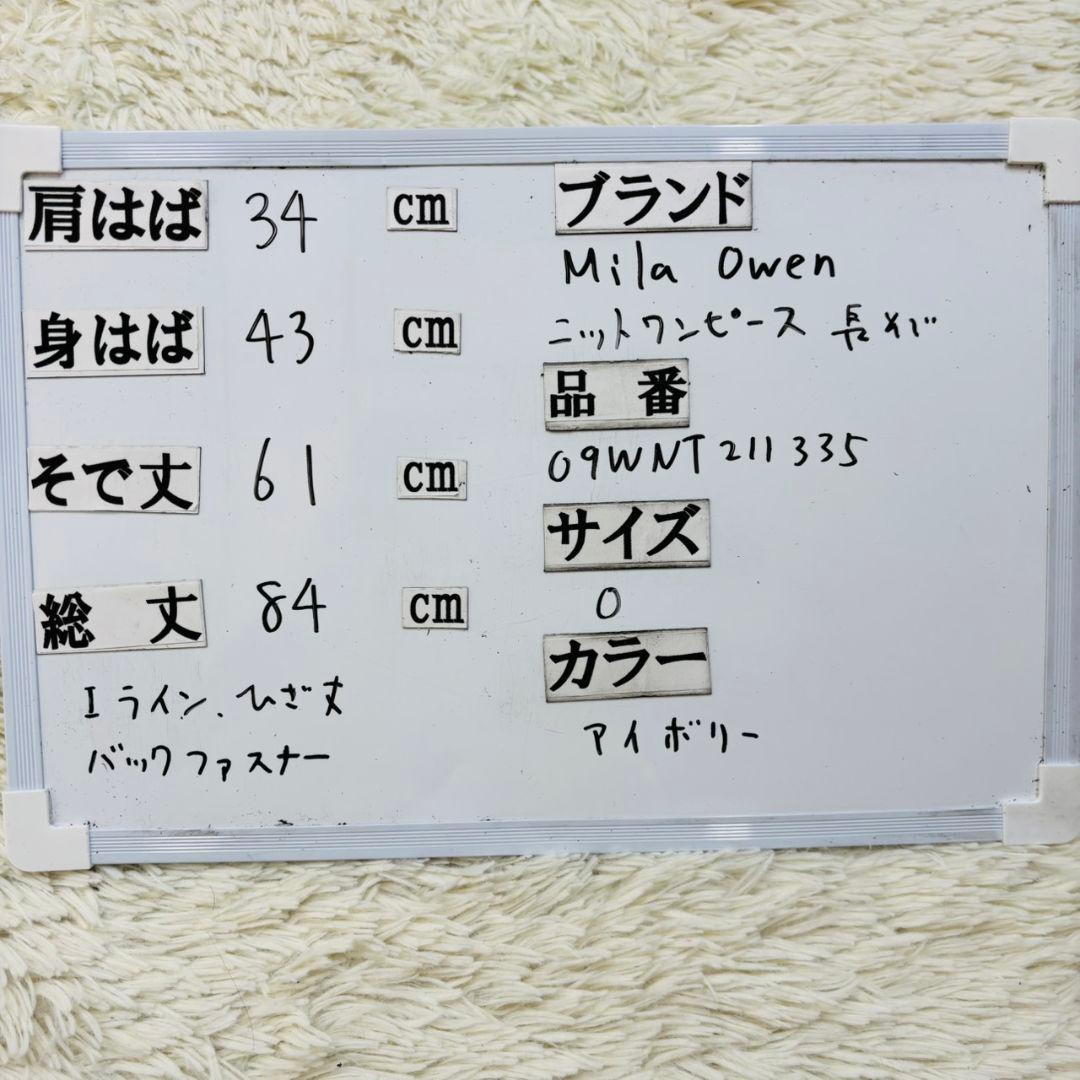 肩はば 34 cm
身はば 43 cm
そで丈 61 cm
総 丈 84 cm
Iライン、ひざ丈
バックファスナー
ブランド
Mila Owen
ニットワンピース 長そで
品 番
09WNT211335
サイズ
0
カラー
アイボリー